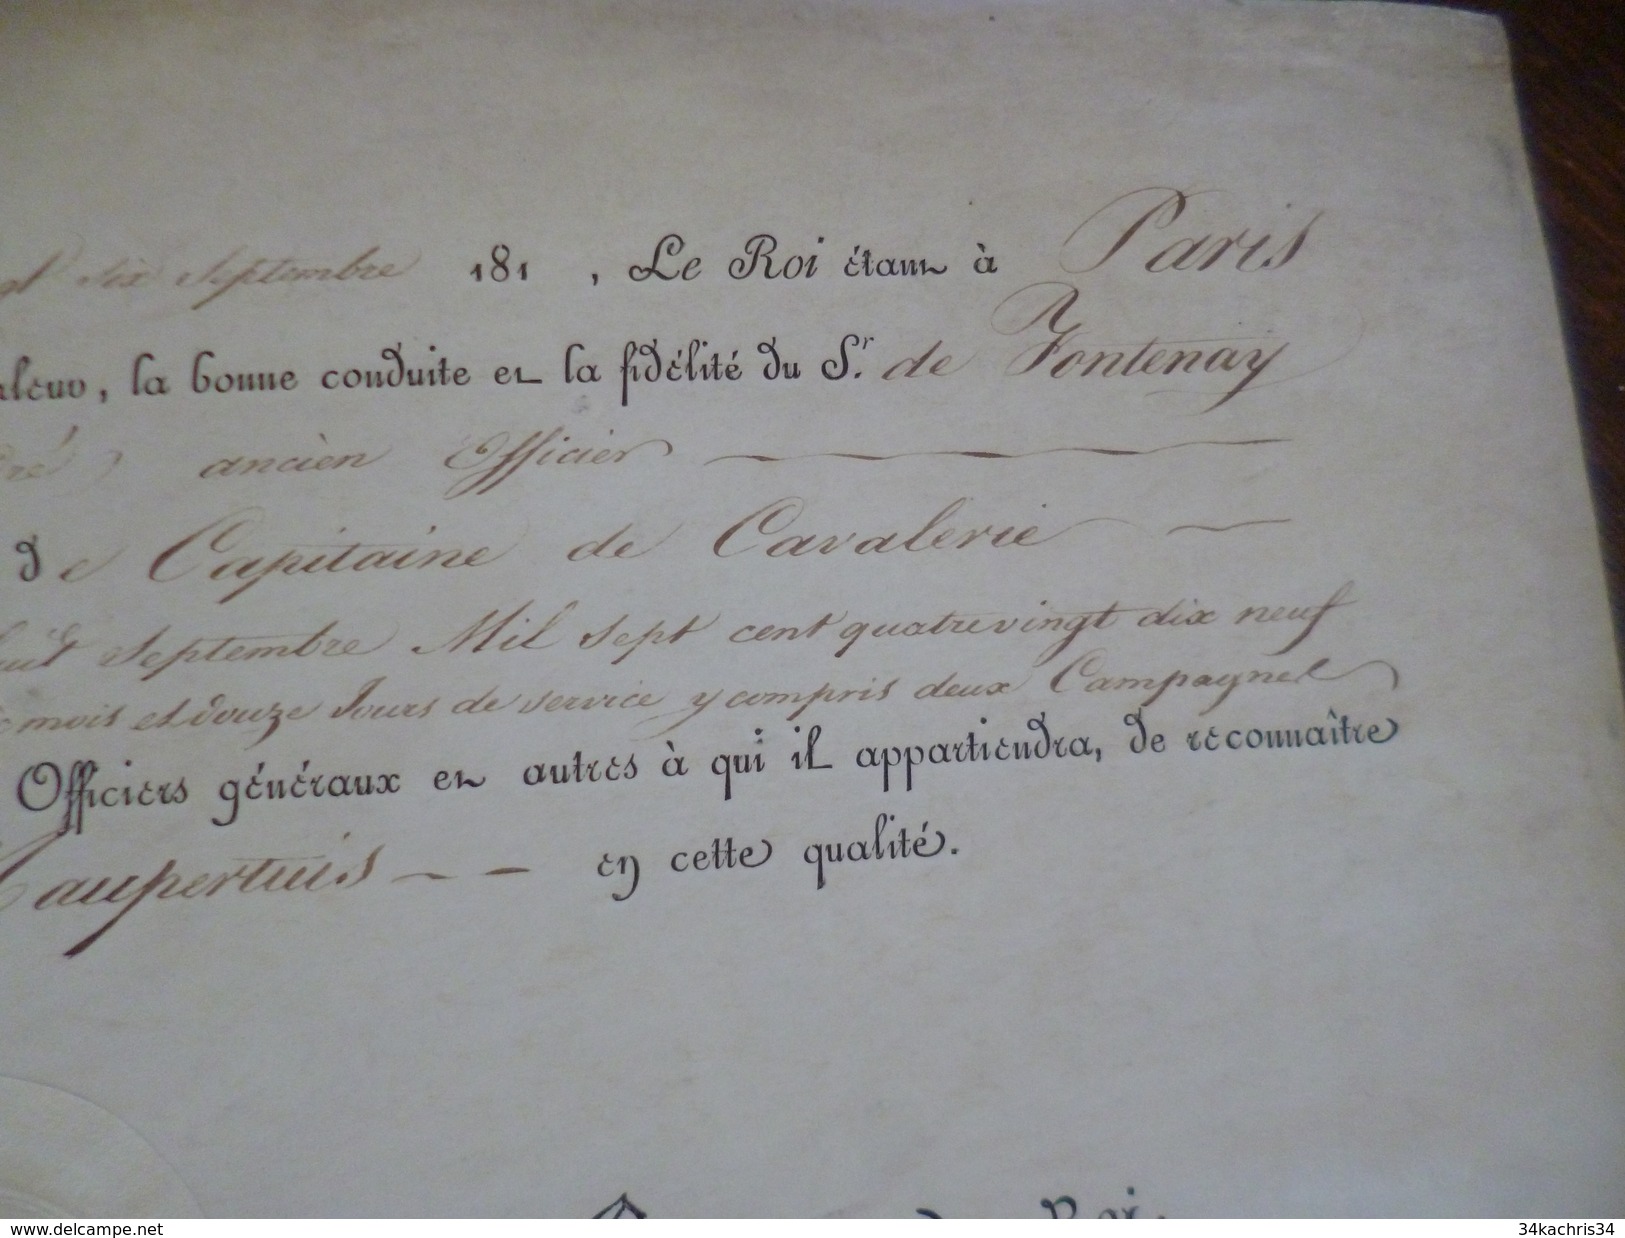 six Septembre 181 , Le Roi étant à Paris
la bonne conduite et la fidélité du S.r de Fontenay
ancien Officier
de Capitaine de Cavalerie
Septembre Mil Sept cent quatrevingt dix neuf
mois et douze Jours de service y compris deux Campagnes
Officiers généraux et autres à qui il appartiendra, de reconnaître
Maupertuis en cette qualité.
Roi.
www.delcampe.net
34kachris34